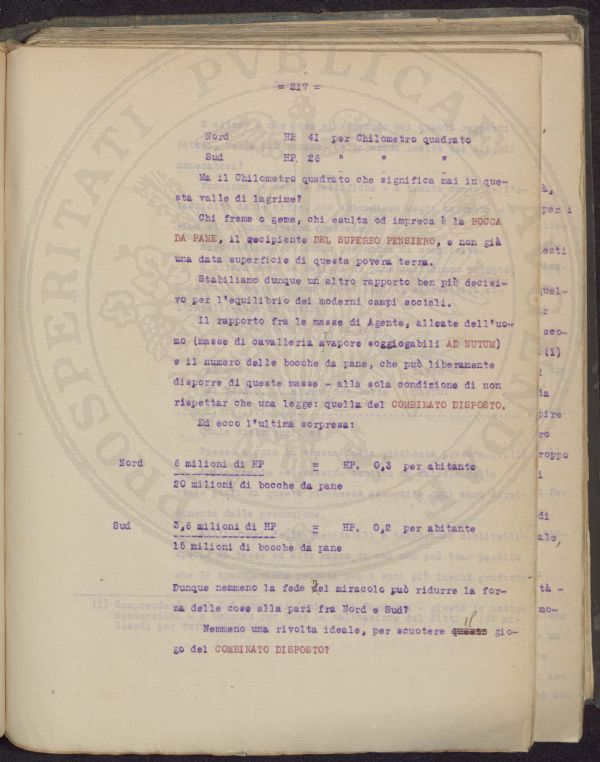 = 217 =
Nord HP. 41 per Chilometro quadrato
Sud HP. 26 " " "
Ma il Chilometro quadrato che significa mai in que-
sta valle di lagrime?
Chi freme o geme, chi esulta od impreca è la BOCCA
DA PANE, il recipiente DEL SUPERBO PENSIERO, e non già
una data superficie di questa povera terra.
Stabiliamo dunque un altro rapporto ben più decisi-
vo per l'equilibrio dei moderni campi sociali.
Il rapporto fra le masse di Agente, alleate dell'uo-
mo (masse di cavalleria avapore soggiogabili AD NUTUM)
e il numero delle bocche da pane, che può liberamente
disporre di queste masse - alla sola condizione di non
rispettar che una legge: quella del COMBINATO DISPOSTO.
Ed ecco l'ultima sorpresa:
Nord 6 milioni di HP = HP. 0,3 per abitante
20 milioni di bocche da pane
Sud 3,6 milioni di HP = HP. 0,2 per abitante
15 milioni di bocche da pane
Dunque nemmeno la fede del miracolo può ridurre la for-
za delle cose alla pari fra Nord e Sud?
Nemmeno una rivolta ideale, per scuotere questo il gio-
go del COMBINATO DISPOSTO?
PROSPERITATI PUBLICAE AUGENDAE